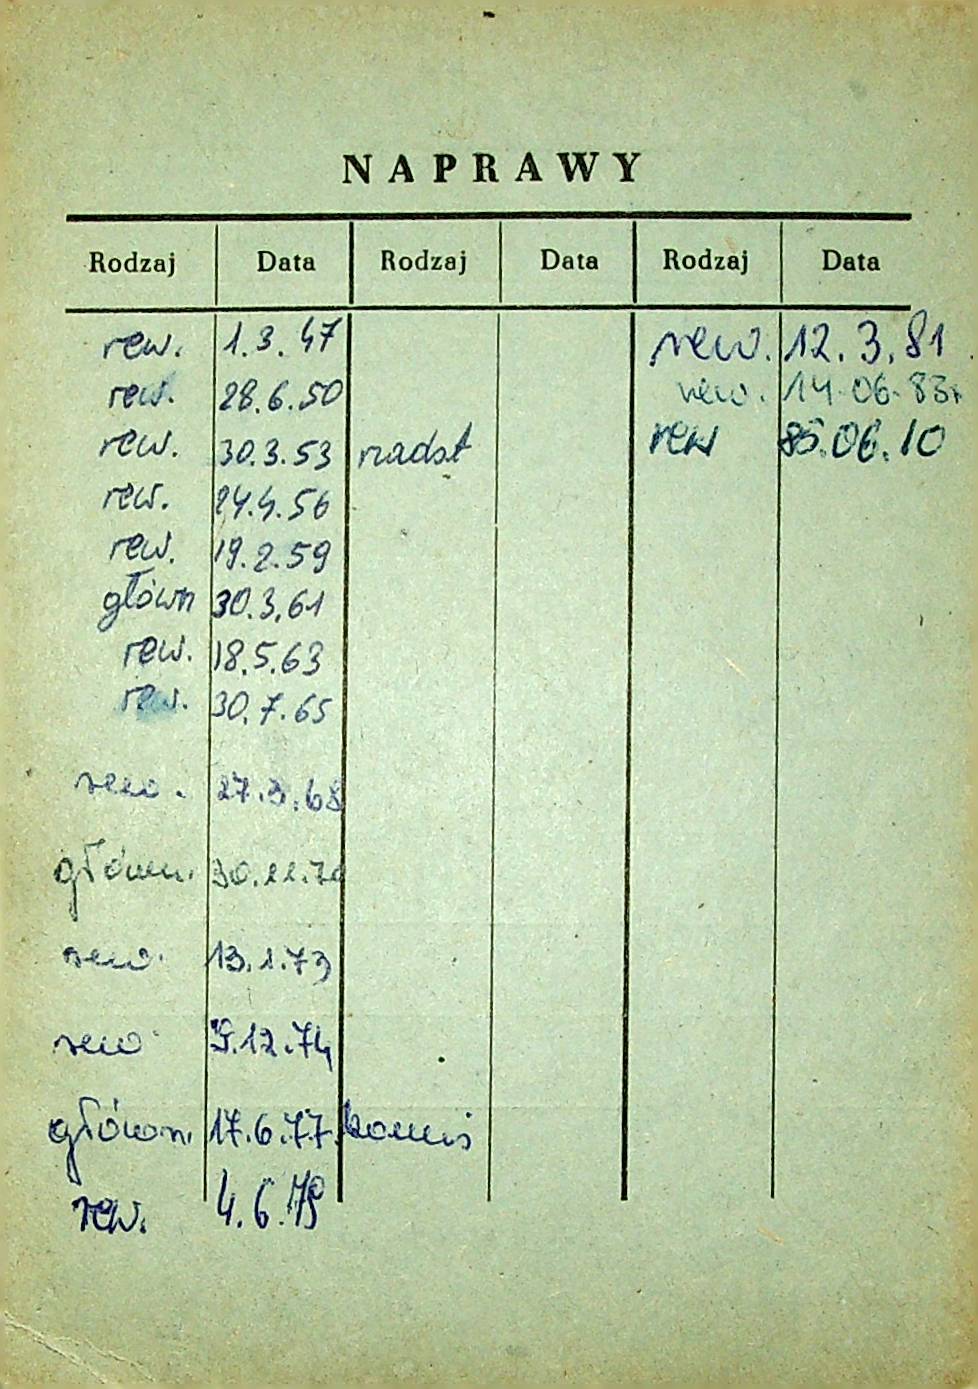 NAPRAWY
Rodzaj Data Rodzaj Data Rodzaj Data
rew. 1.3.47 rew. 12.3.81.
rew. 28.6.50 rew. 14.06.83r
rew. 30.3.53 nadst rew 85.06.10
rew. 24.4.56
rew. 19.2.59
główn 30.3.61
rew. 18.5.63
rew. 30.7.65
rew. 27.3.68
główn. 30.11.70
rew. 13.1.73
rew. 9.12.74
główn. 17.6.77. komis
rew. 4.6.79